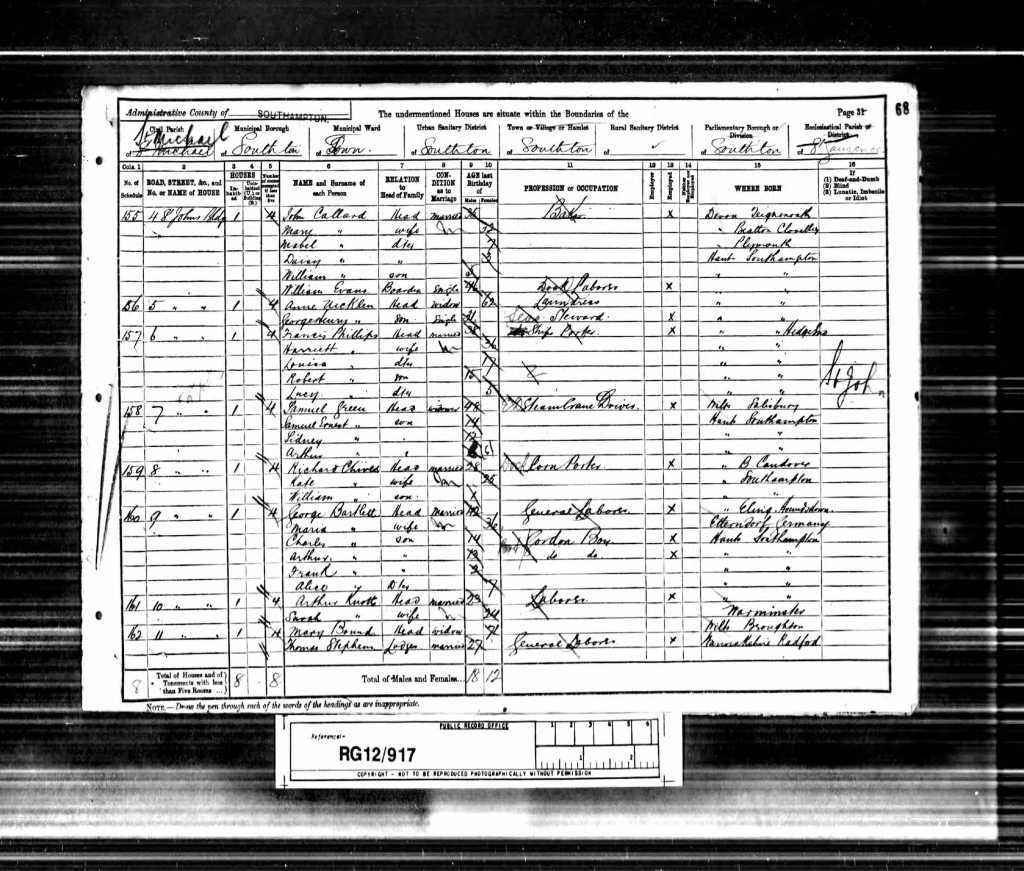 68
Administrative County of SOUTHAMPTON. The undermentioned Houses are situate within the Boundaries of the Page 31
Civil Parish Municipal Borough Municipal Ward Urban Sanitary District Town or Village or Hamlet Rural Sanitary District Parliamentary Borough or Division Ecclesiastical Parish or District
St Michael
of St Michael of Southton of Town. of Southton of Southton of of Southton of St Laurence
Cols. 1 2 3 4 5 6 7 8 9 10 11 12 13 14 15 16
No. of Schedule ROAD, STREET, &c., and No. or NAME of HOUSE HOUSES Inhabited NAME and Surname of each Person RELATION to Head of Family CONDITION as to Marriage AGE last Birthday of Males Females PROFESSION or OCCUPATION Employer Employed Neither WHERE BORN If (1) Deaf-and-Dumb (2) Blind (3) Lunatic, Imbecile or Idiot
155 4 St Johns Bldg 1 4 John Callard Head married Baker X Devon Teignmouth
Mary " wife 32 " Bratton Clovelly
Mabel " dter 7 " Plymouth
Daisy " " 3 Hants Southampton
William " son " "
William Evans Boarder Single 46 Dock Laborer X " "
156 5 " " 1 4 Anne Nicklen Head widow 62 Laundress " "
George Henry " son Single Steward X " "
157 6 " " 1 4 Francis Phillips Head married Ships Porter X " "
Harriett " wife 36 " "
Louisa " dter " "
Robert " son " "
Lucy " dter 5 " "
St Joh
158 7 " " 1 4 Samuel Green Head widower 48 Steam Crane Driver X Wilts Salisbury
Samuel Ernest " son 14 Hants Southampton
Sidney " " 12 " "
Arthur " " " "
159 8 " " 1 4 Richard Chivers Head married 28 Dock Corn Porter X " B Candover
Kate " wife 25 " Southampton
William " son " "
160 9 " " 1 4 George Bartlett Head Married 42 General Laborer X " Eling Houndsdown
Maria " wife 36 Germany
Charles " son 14 Gordon Boy X Hants Southampton
Arthur " " 12 do do X " "
Frank " " " "
Alice " Dter 7 " "
161 10 " " 1 4 Arthur Knott Head married 23 Laborer X " "
Sarah " wife 24 Warminster
162 11 " " 1 4 Mary Bound Head widow Wilts Broughton
Thomas Stephens Lodger married 27 General Laborer X Radford
8 Total of Houses and of Tenements with less than Five Rooms 8 8 Total of Males and Females... 18 12
NOTE.—Draw the pen through such of the words of the headings as are inappropriate.
PUBLIC RECORD OFFICE
1 2 3 4 5 6
Reference:-
RG12/917
1 2
COPYRIGHT - NOT TO BE REPRODUCED PHOTOGRAPHICALLY WITHOUT PERMISSION